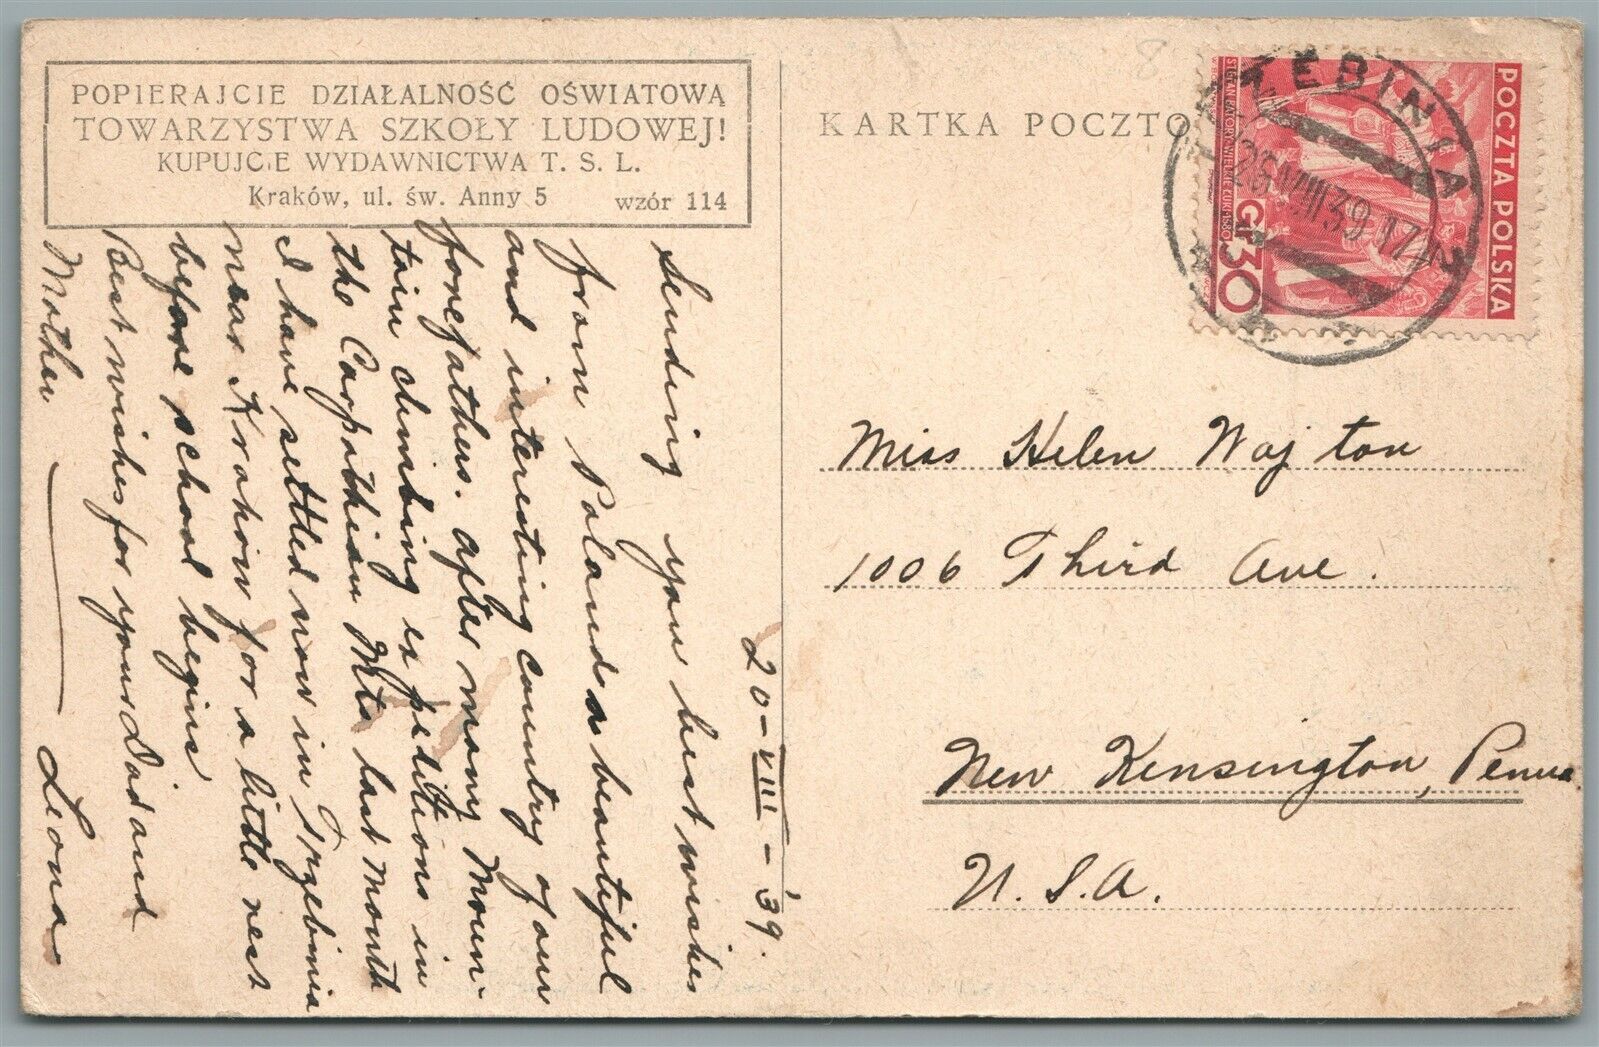 POPIERAJCIE DZIAŁALNOŚĆ OŚWIATOWĄ
TOWARZYSTWA SZKOŁY LUDOWEJ!
KUPUJCIE WYDAWNICTWA T. S. L.
Kraków, ul. św. Anny 5 wzór 114
20-VIII-'39.
Sending you best wishes
from Poland a beautiful
and interesting country of our
forefathers. After many moun-
tain climbing expeditions in
the Carpathian Mts last month
I have settled now in Trzebinia
near Krakow for a little rest
before school begins
Best wishes for your Dad and
Mother Leona
KARTKA POCZTO
TRZEBINIA
26.VIII.39.17
POCZTA POLSKA
STEFAN BATORY-WIELKIE ŁUKI-1580
Gr 30
Miss Helen Wojton
1006 Third Ave.
New Kensington, Penna
U.S.A.